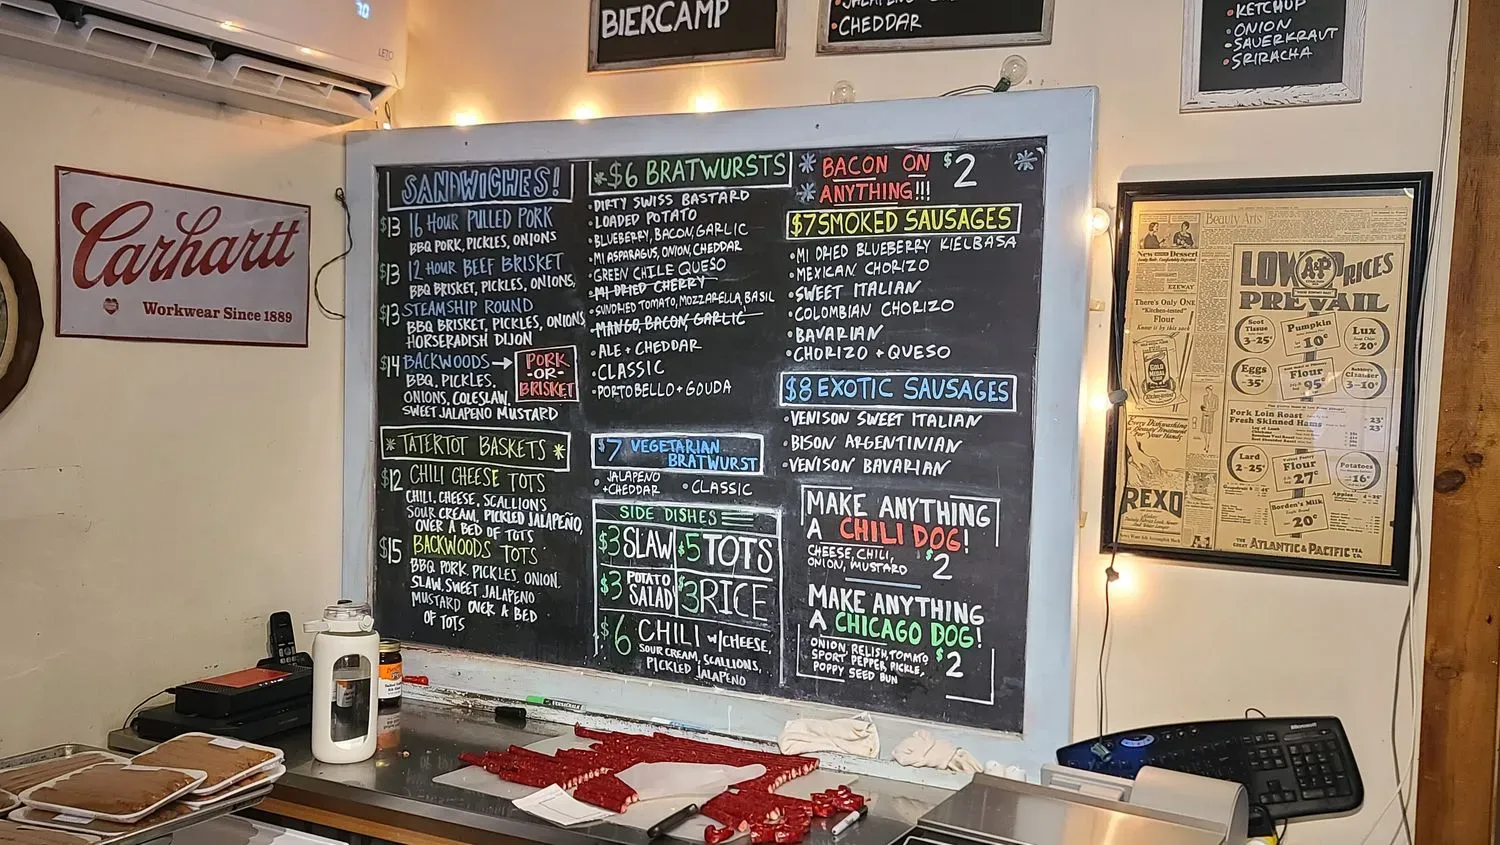 BIERCAMP
CHEDDAR
KETCHUP
ONION
SAUERKRAUT
SRIRACHA
LETO
Carhartt
Workwear Since 1889
SANDWICHES!
$13 16 HOUR PULLED PORK
BBQ PORK, PICKLES, ONIONS
$13 12 HOUR BEEF BRISKET
BBQ BRISKET, PICKLES, ONIONS,
$13 STEAMSHIP ROUND
BBQ BRISKET, PICKLES, ONIONS
HORSERADISH DIJON
$14 BACKWOODS → PORK -OR- BRISKET
BBQ, PICKLES,
ONIONS, COLESLAW,
SWEET JALAPENO MUSTARD
* TATERTOT BASKETS *
$12 CHILI CHEESE TOTS
CHILI, CHEESE, SCALLIONS
SOUR CREAM, PICKLED JALAPEÑO,
OVER A BED OF TOTS
$15 BACKWOODS TOTS
BBQ PORK, PICKLES, ONION,
SLAW, SWEET JALAPENO
MUSTARD OVER A BED
OF TOTS
*$6 BRATWURSTS
•DIRTY SWISS BASTARD
•LOADED POTATO
•BLUEBERRY, BACON, GARLIC
•MI ASPARAGUS, ONION, CHEDDAR
•GREEN CHILE QUESO
•MI DRIED CHERRY
•SUNDRIED TOMATO, MOZZARELLA, BASIL
•MANGO, BACON, GARLIC
•ALE + CHEDDAR
•CLASSIC
•PORTOBELLO + GOUDA
$7 VEGETARIAN
BRATWURST
• JALAPENO
+CHEDDAR
• CLASSIC
SIDE DISHES
$3 SLAW
$5 TOTS
$3 POTATO SALAD
$3 RICE
$6 CHILI w/CHEESE,
SOUR CREAM, SCALLIONS,
PICKLED JALAPENO
* BACON ON $2 *
* ANYTHING!!!
$7 SMOKED SAUSAGES
•MI DRIED BLUEBERRY KIELBASA
•MEXICAN CHORIZO
•SWEET ITALIAN
•COLOMBIAN CHORIZO
•BAVARIAN
•CHORIZO + QUESO
$8 EXOTIC SAUSAGES
•VENISON SWEET ITALIAN
•BISON ARGENTINIAN
•VENISON BAVARIAN
MAKE ANYTHING
A CHILI DOG!
CHEESE, CHILI,
ONION, MUSTARD
$2
MAKE ANYTHING
A CHICAGO DOG!
ONION, RELISH, TOMATO
SPORT PEPPER, PICKLE,
POPPY SEED BUN
$2
Beauty Arts
New Dessert
EZEWAY
There's Only ONE
"Kitchen-tested"
Flour
REXO
LOW A&P PRICES
PREVAIL
Scot Tissue 3-25¢
Pumpkin 10¢
Lux 20¢
Eggs 35¢
Flour 95¢
Cleanser 3-10¢
Pork Loin Roast 23¢
Fresh Skinned Hams 23¢
Lard 2-25¢
Flour 27¢
Potatoes
Apples
Borden's Milk 20¢
THE GREAT ATLANTIC & PACIFIC TEA CO.
Microsoft